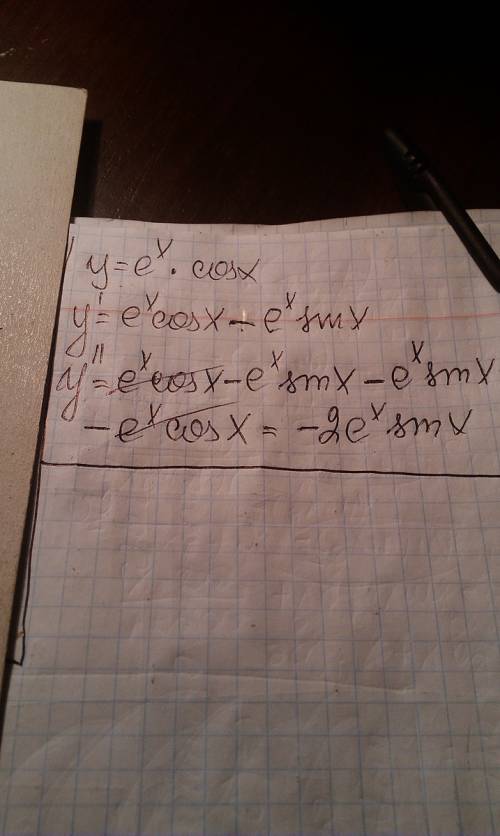 y = e^x · cosx
y' = e^x cosx - e^x sinx
y'' = e^x cosx - e^x sinx - e^x sinx
- e^x cosx = -2e^x sinx